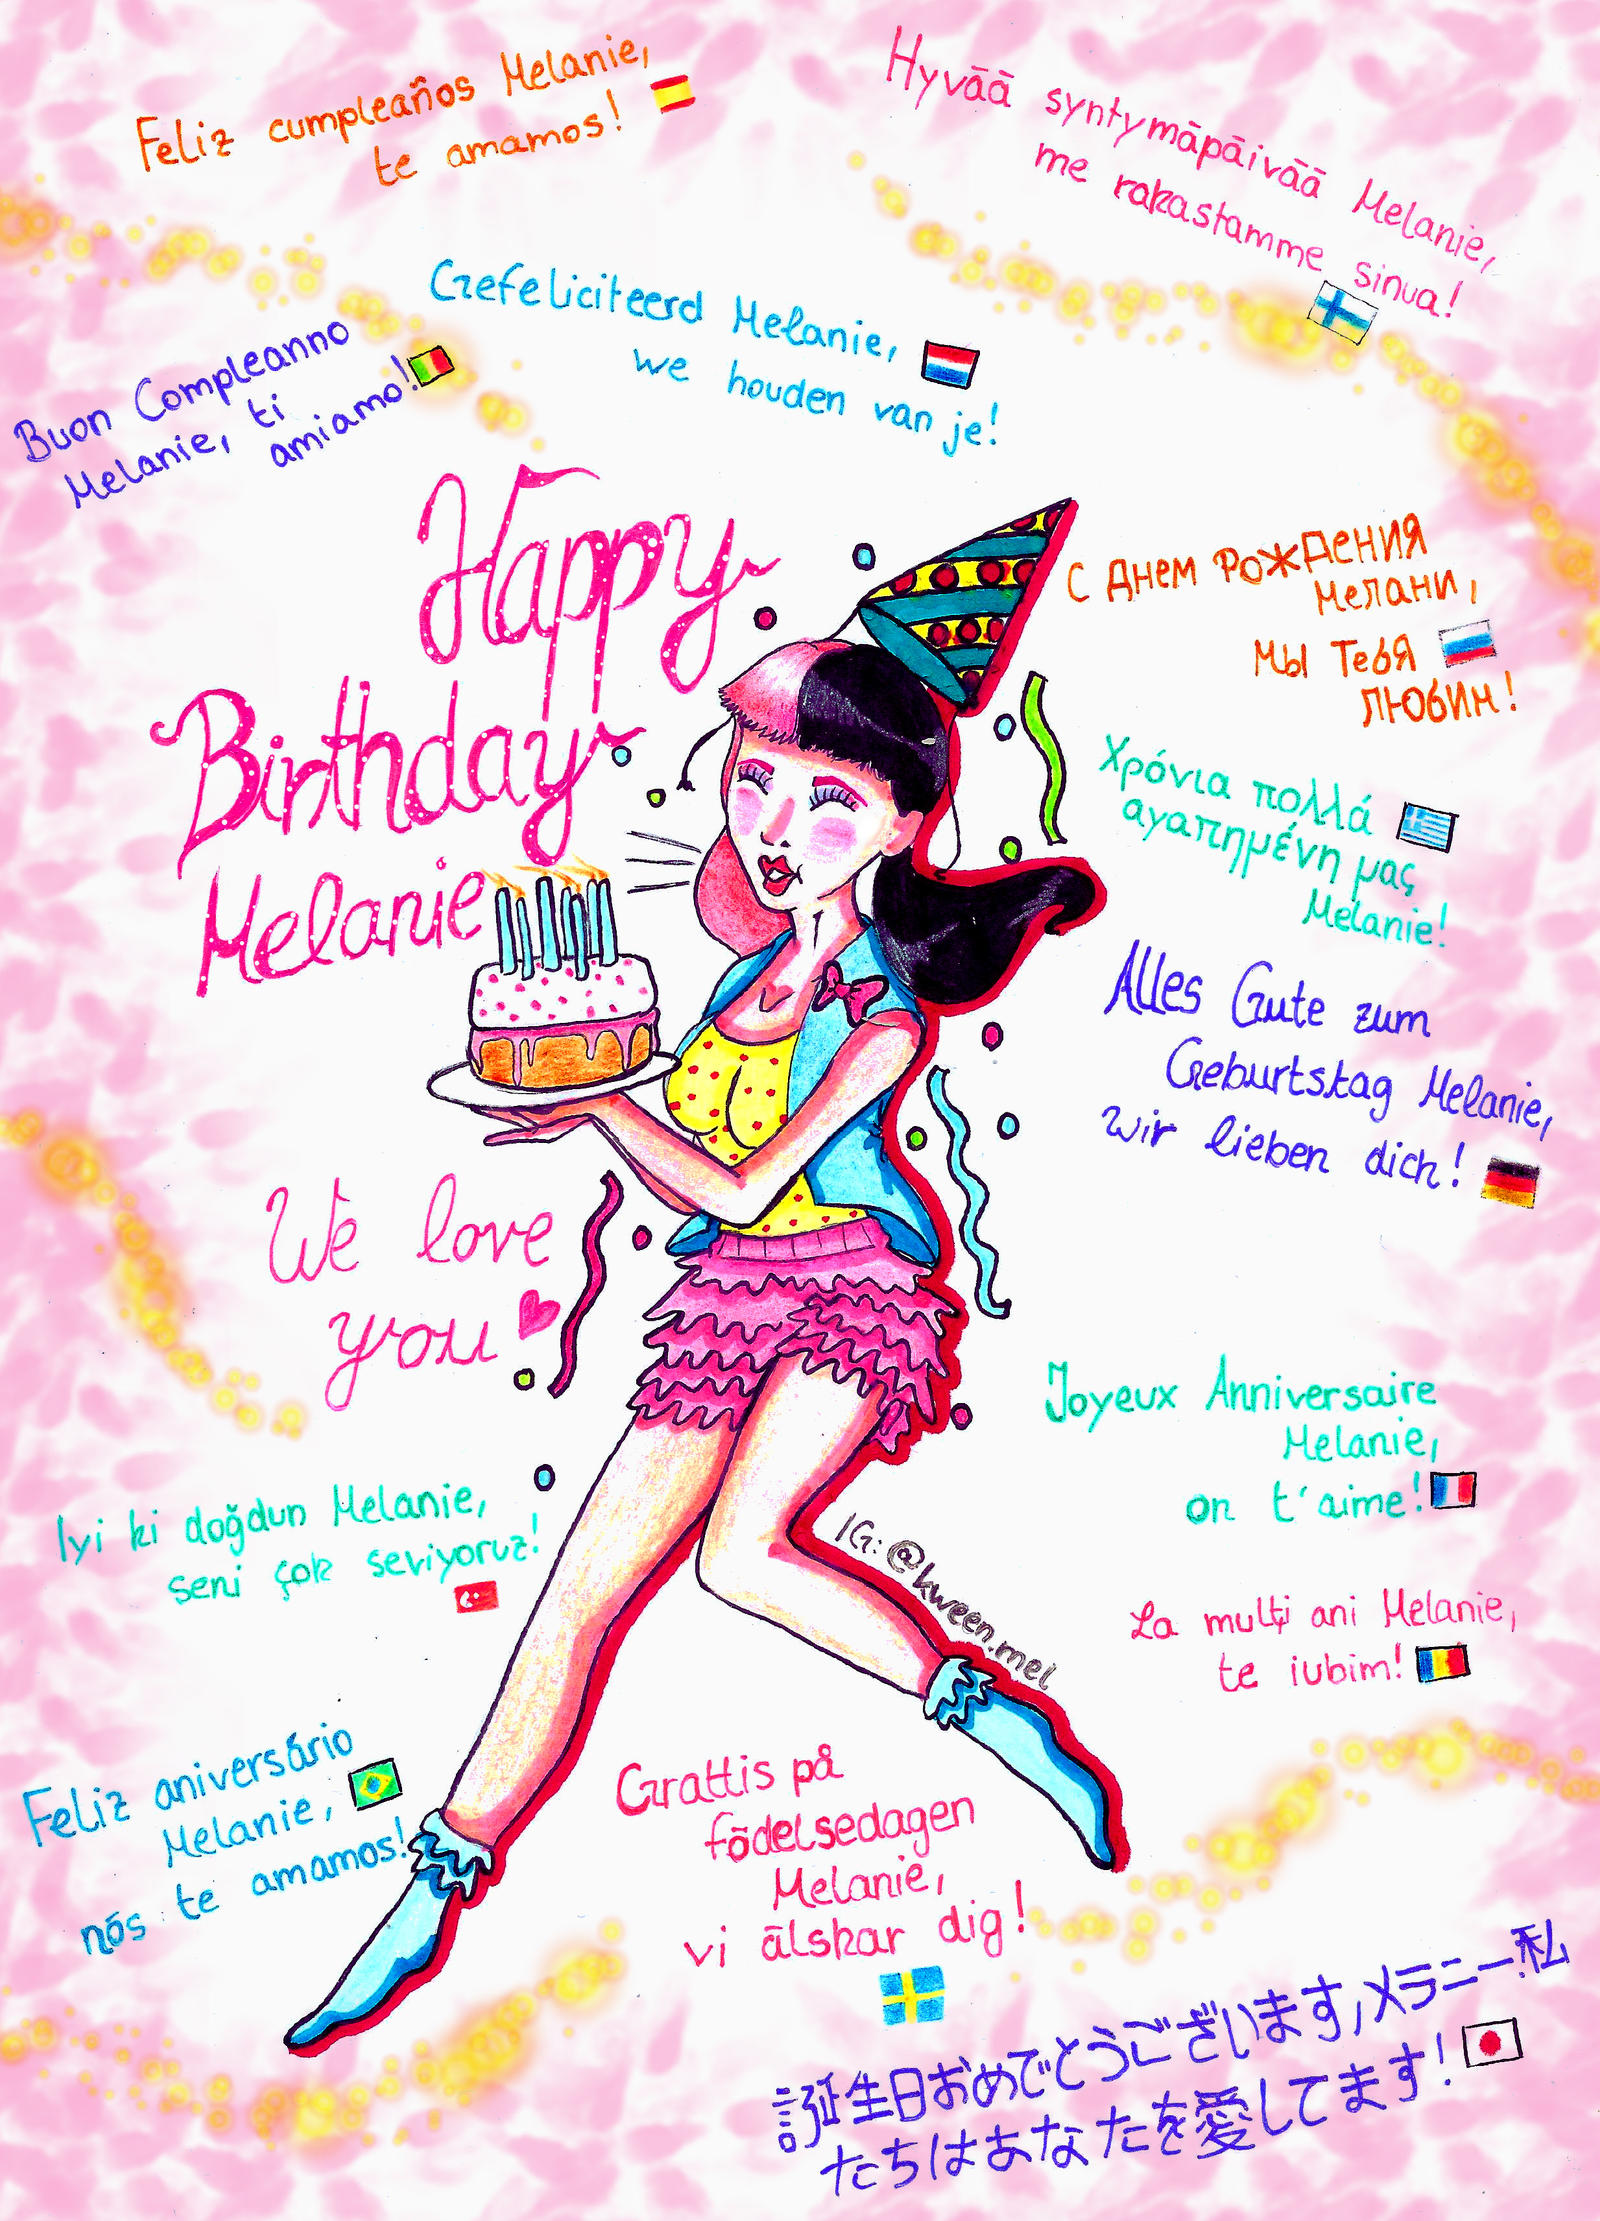 Feliz cumpleaños Melanie,
te amamos!
Hyvää syntymäpäivää Melanie,
me rakastamme sinua!
Gefeliciteerd Melanie,
we houden van je!
Buon Compleanno
Melanie, ti
amiamo!
Happy
Birthday
Melanie
С Днем РОЖДЕНИЯ
Мелани,
Мы Тебя
ЛЮбим!
Χρόνια πολλά
αγαπημένη μας
Melanie!
Alles Gute zum
Geburtstag Melanie,
wir lieben dich!
We love
you
Joyeux Anniversaire
Melanie,
on t'aime!
Iyi ki doğdun Melanie,
seni çok seviyoruz!
IG: @kween.mel
La mulţi ani Melanie,
te iubim!
Feliz aniversário
Melanie,
nós te amamos!
Grattis på
födelsedagen
Melanie,
vi älskar dig!
誕生日おめでとうございます,メラニー!私
たちはあなたを愛してます!